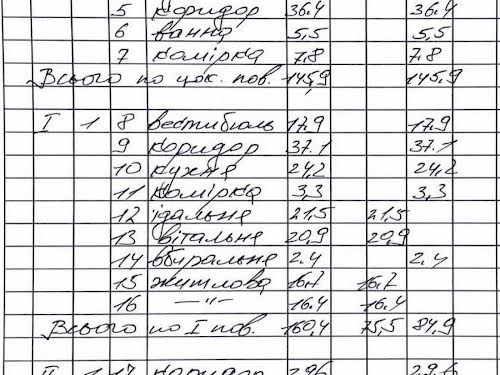 5 коридор 36.4 36.4
6 ванна 5,5 5,5
7 комірка 7,8 7.8
Всього по цок. пов. 145,9 145.9
I 1 8 вестибюль 17.9 17.9
9 коридор 37.1 37.1
10 кухня 24,2 24,2
11 комірка 3,3 3,3
12 їдальня 21,5 21,5
13 вітальня 20,9 20,9
14 вбиральня 2.4 2.4
15 житлова 16,7 16,7
16 —"— 16.4 16.4
Всього по I пов. 160,4 75,5 84,9
II 1 17 коридор 29,6 29,6